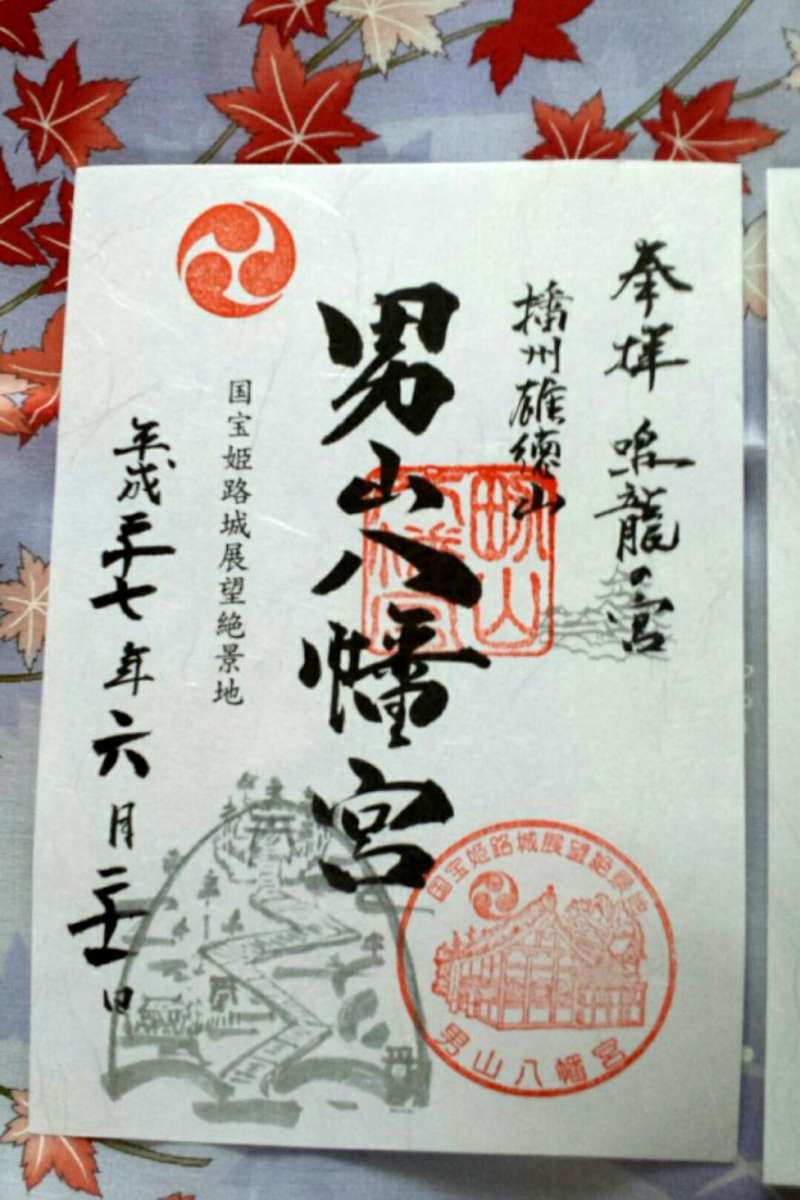 奉拝 鳴龍の宮
播州雄徳山
男山八幡宮
国宝姫路城展望絶景地
平成二十七年六月二十一日
国宝姫路城展望絶景地
男山八幡宮